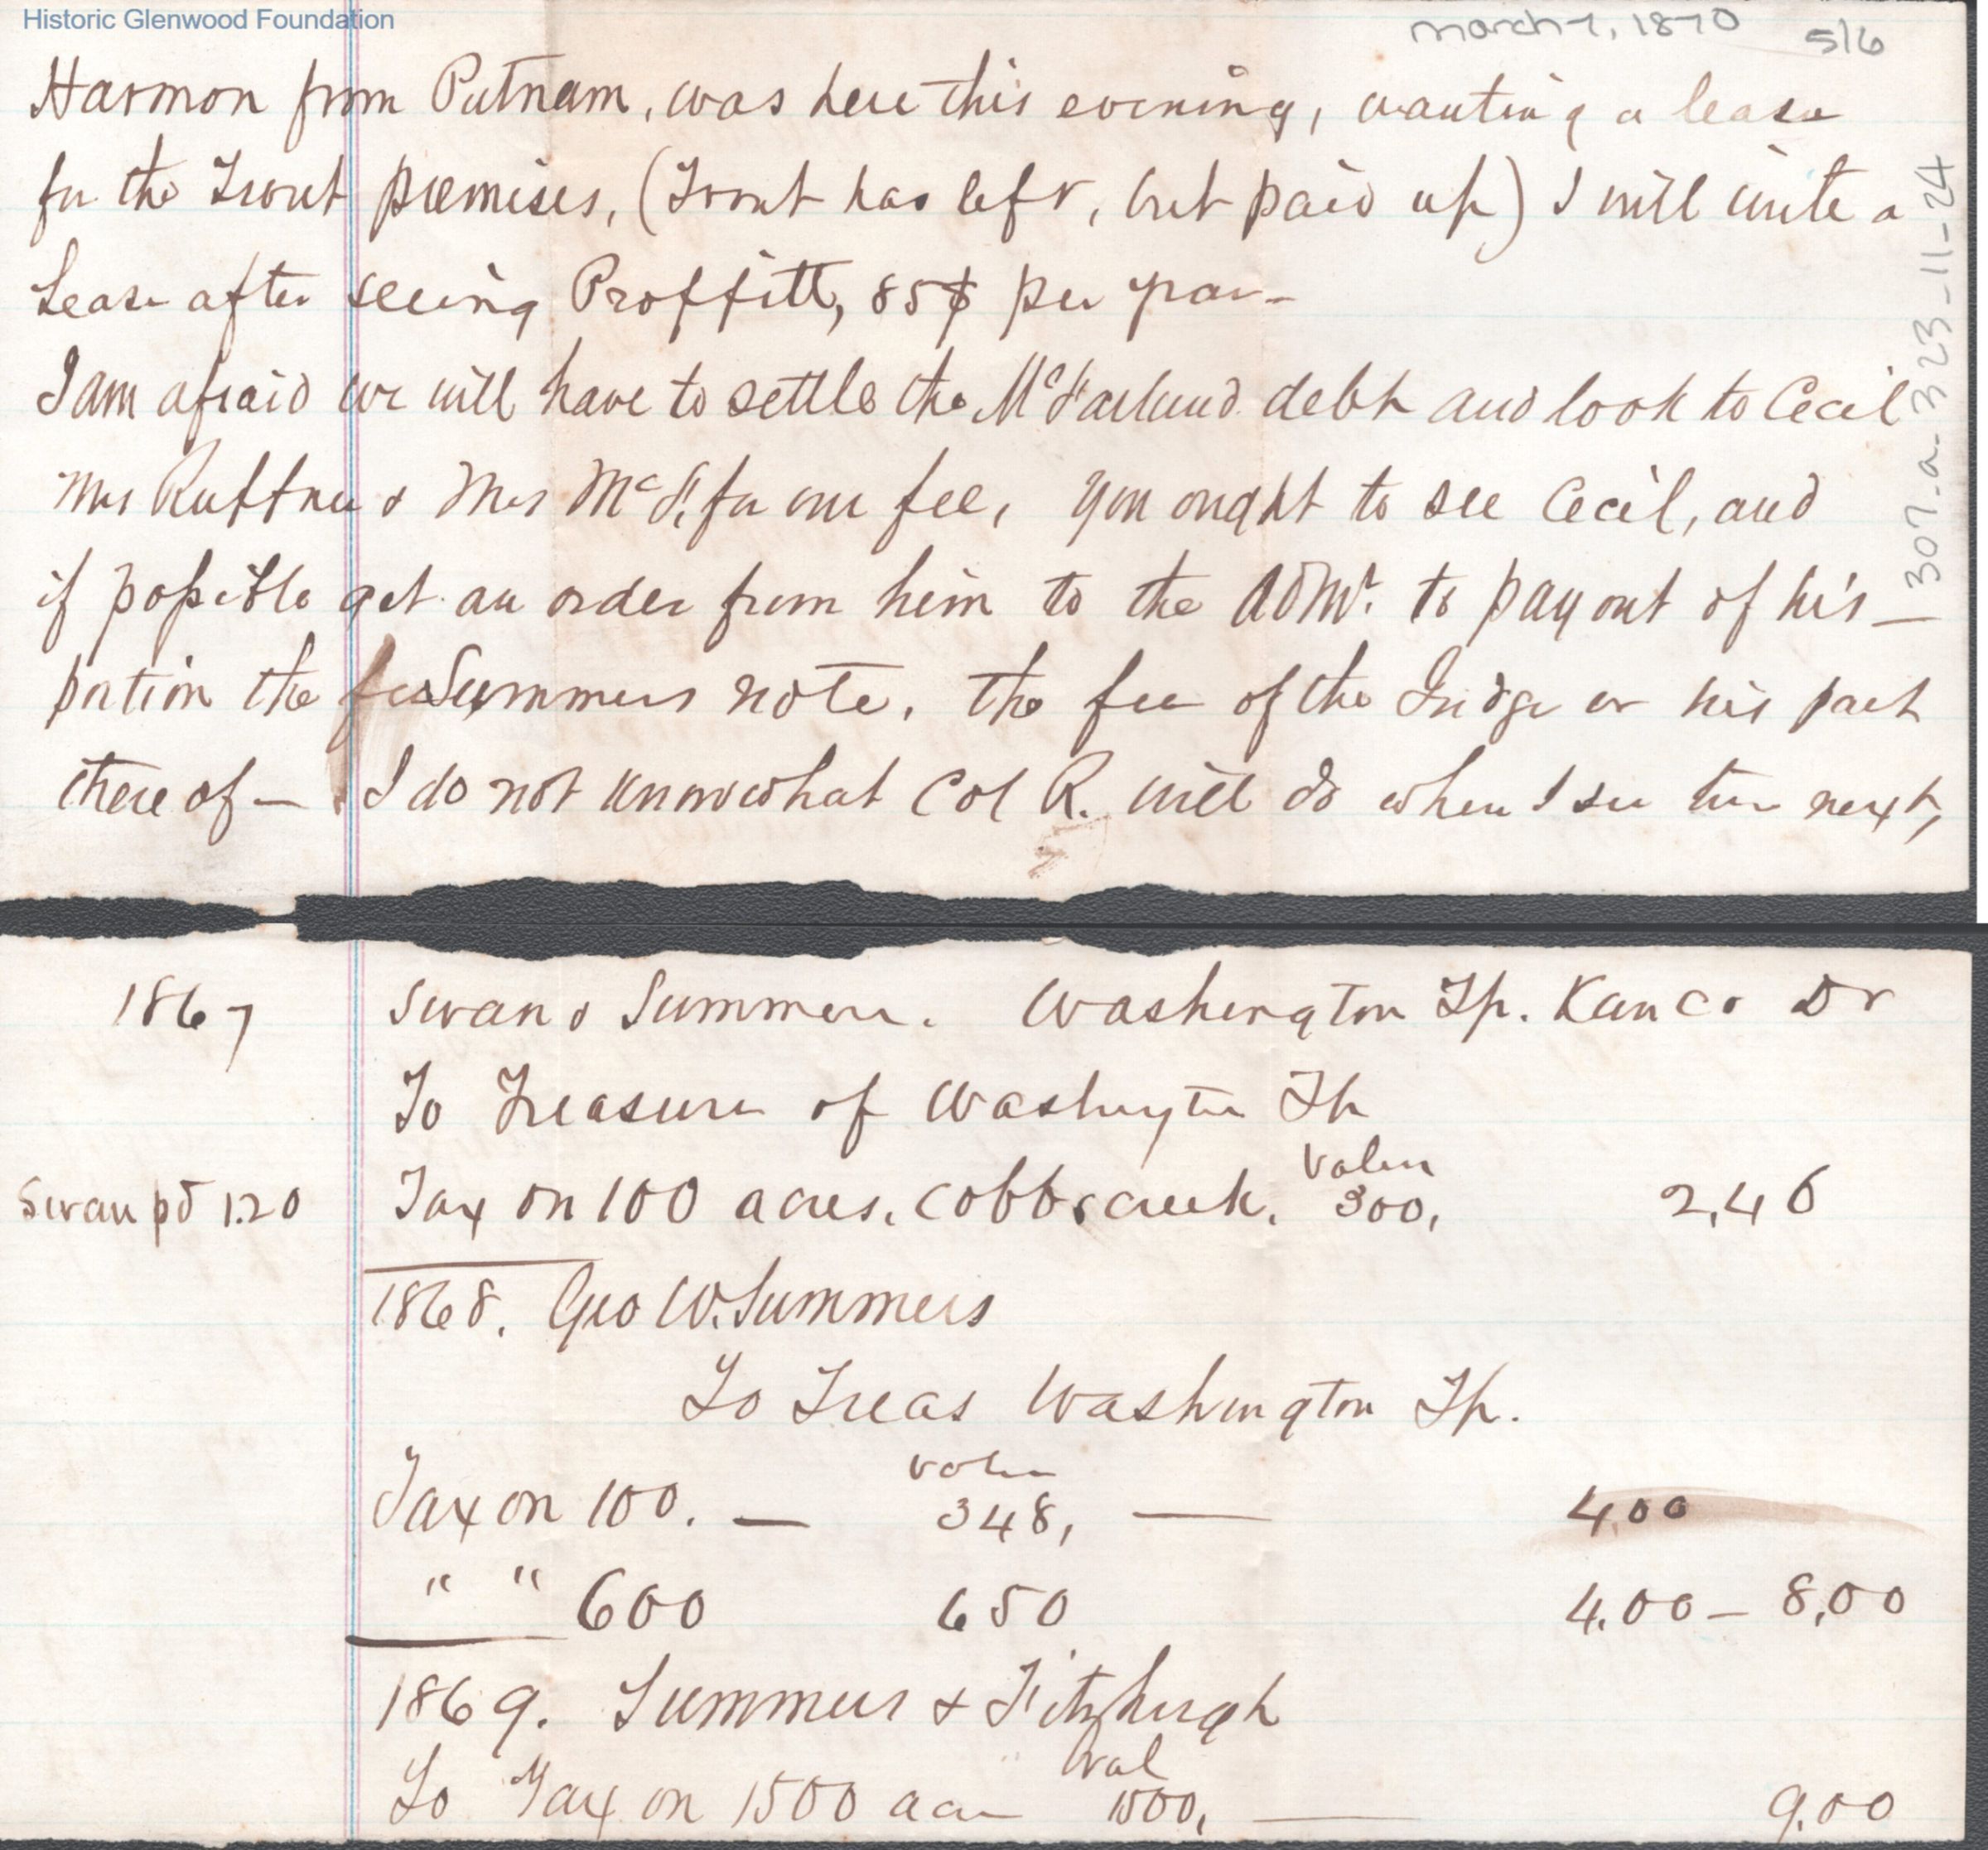 Historic Glenwood Foundation
March 7, 1870 516
Harmon from Putnam, was here this evening, wanting a lease
for the Trout premises, (Trout has left, but paid up) I will write a
Lease after seeing Proffitt, 85$ per year—
I am afraid we will have to settle the McFarland debt and look to Cecil
Mrs Ruffner & Mrs McF. for our fee, you ought to see Cecil, and
if possible get an order from him to the Admr. to pay out of his—
portion the Summers note, the fee of the Judge or his part
there of— I do not know what Col R. will do when I see him next,
307.a.323-11-24
1867 Swan & Summers. Washington Tp. Kan Co Dr
To Treasurer of Washington Tp
Value
Swan pd 1.20 Tax on 100 acres. Cobbs creek. 300, 2,46
1868. Geo W. Summers
To Treas Washington Tp.
Value
Tax on 100. — 348, — 4.00
" " 600 650 4.00 — 8,00
1869. Summers & Fitzhugh
Val
To Tax on 1500 acr 1500, — 9.00